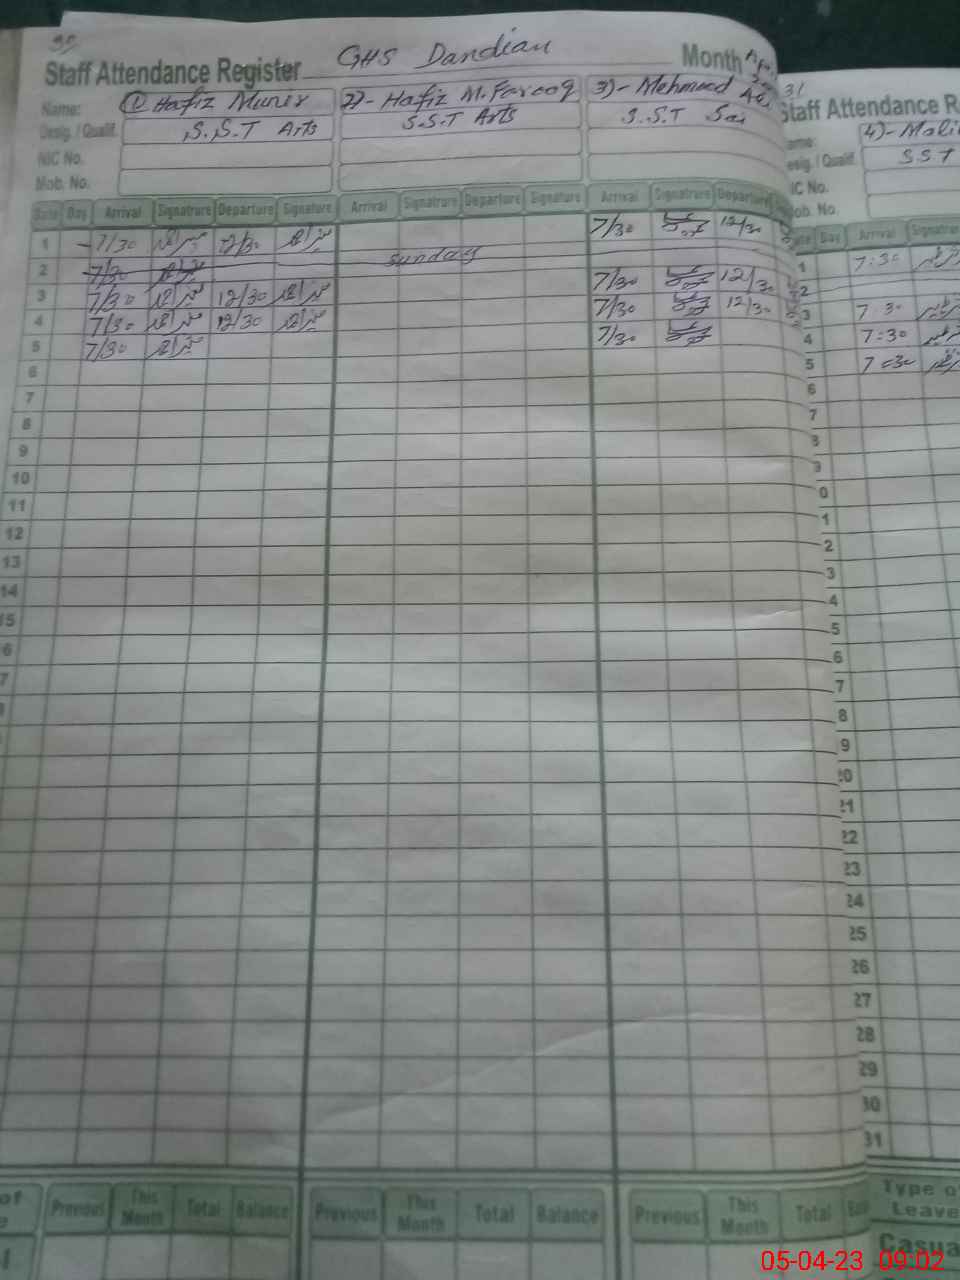 30
Staff Attendance Register GHS Dandian Month
Name: 1) Hafiz Munir 2)- Hafiz M. Farooq 3)- Mehmood
Desig. / Qualif. S.S.T Arts S.S.T Arts S.S.T
NIC No.
Mob. No.
Date Day Arrival Signatrure Departure Signature Arrival Signatrure Departure Signature Arrival Signatrure Departure
1 7/30 12/30 7/30 12/30
2 7/30 sunday
3 7/30 12/30 7/30 12/30
4 7/30 12/30 7/30 12/30
5 7/30 7/30
6
7
8
9
10
11
12
13
14
15
6
7
Previous This Month Total Balance Previous This Month Total Balance Previous This Month Total
31
Staff Attendance R
ame: 4)-
esig. / Qualif. SST
IC No.
ob. No.
ate Day Arrival Signatrur
1 7:30
2
3 7:30
4 7:30
5 7:30
6
7
8
9
0
1
2
3
4
5
6
7
8
9
20
21
22
23
24
25
26
27
28
29
30
31
Type o
Leave
Casua
05-04-23 09:02